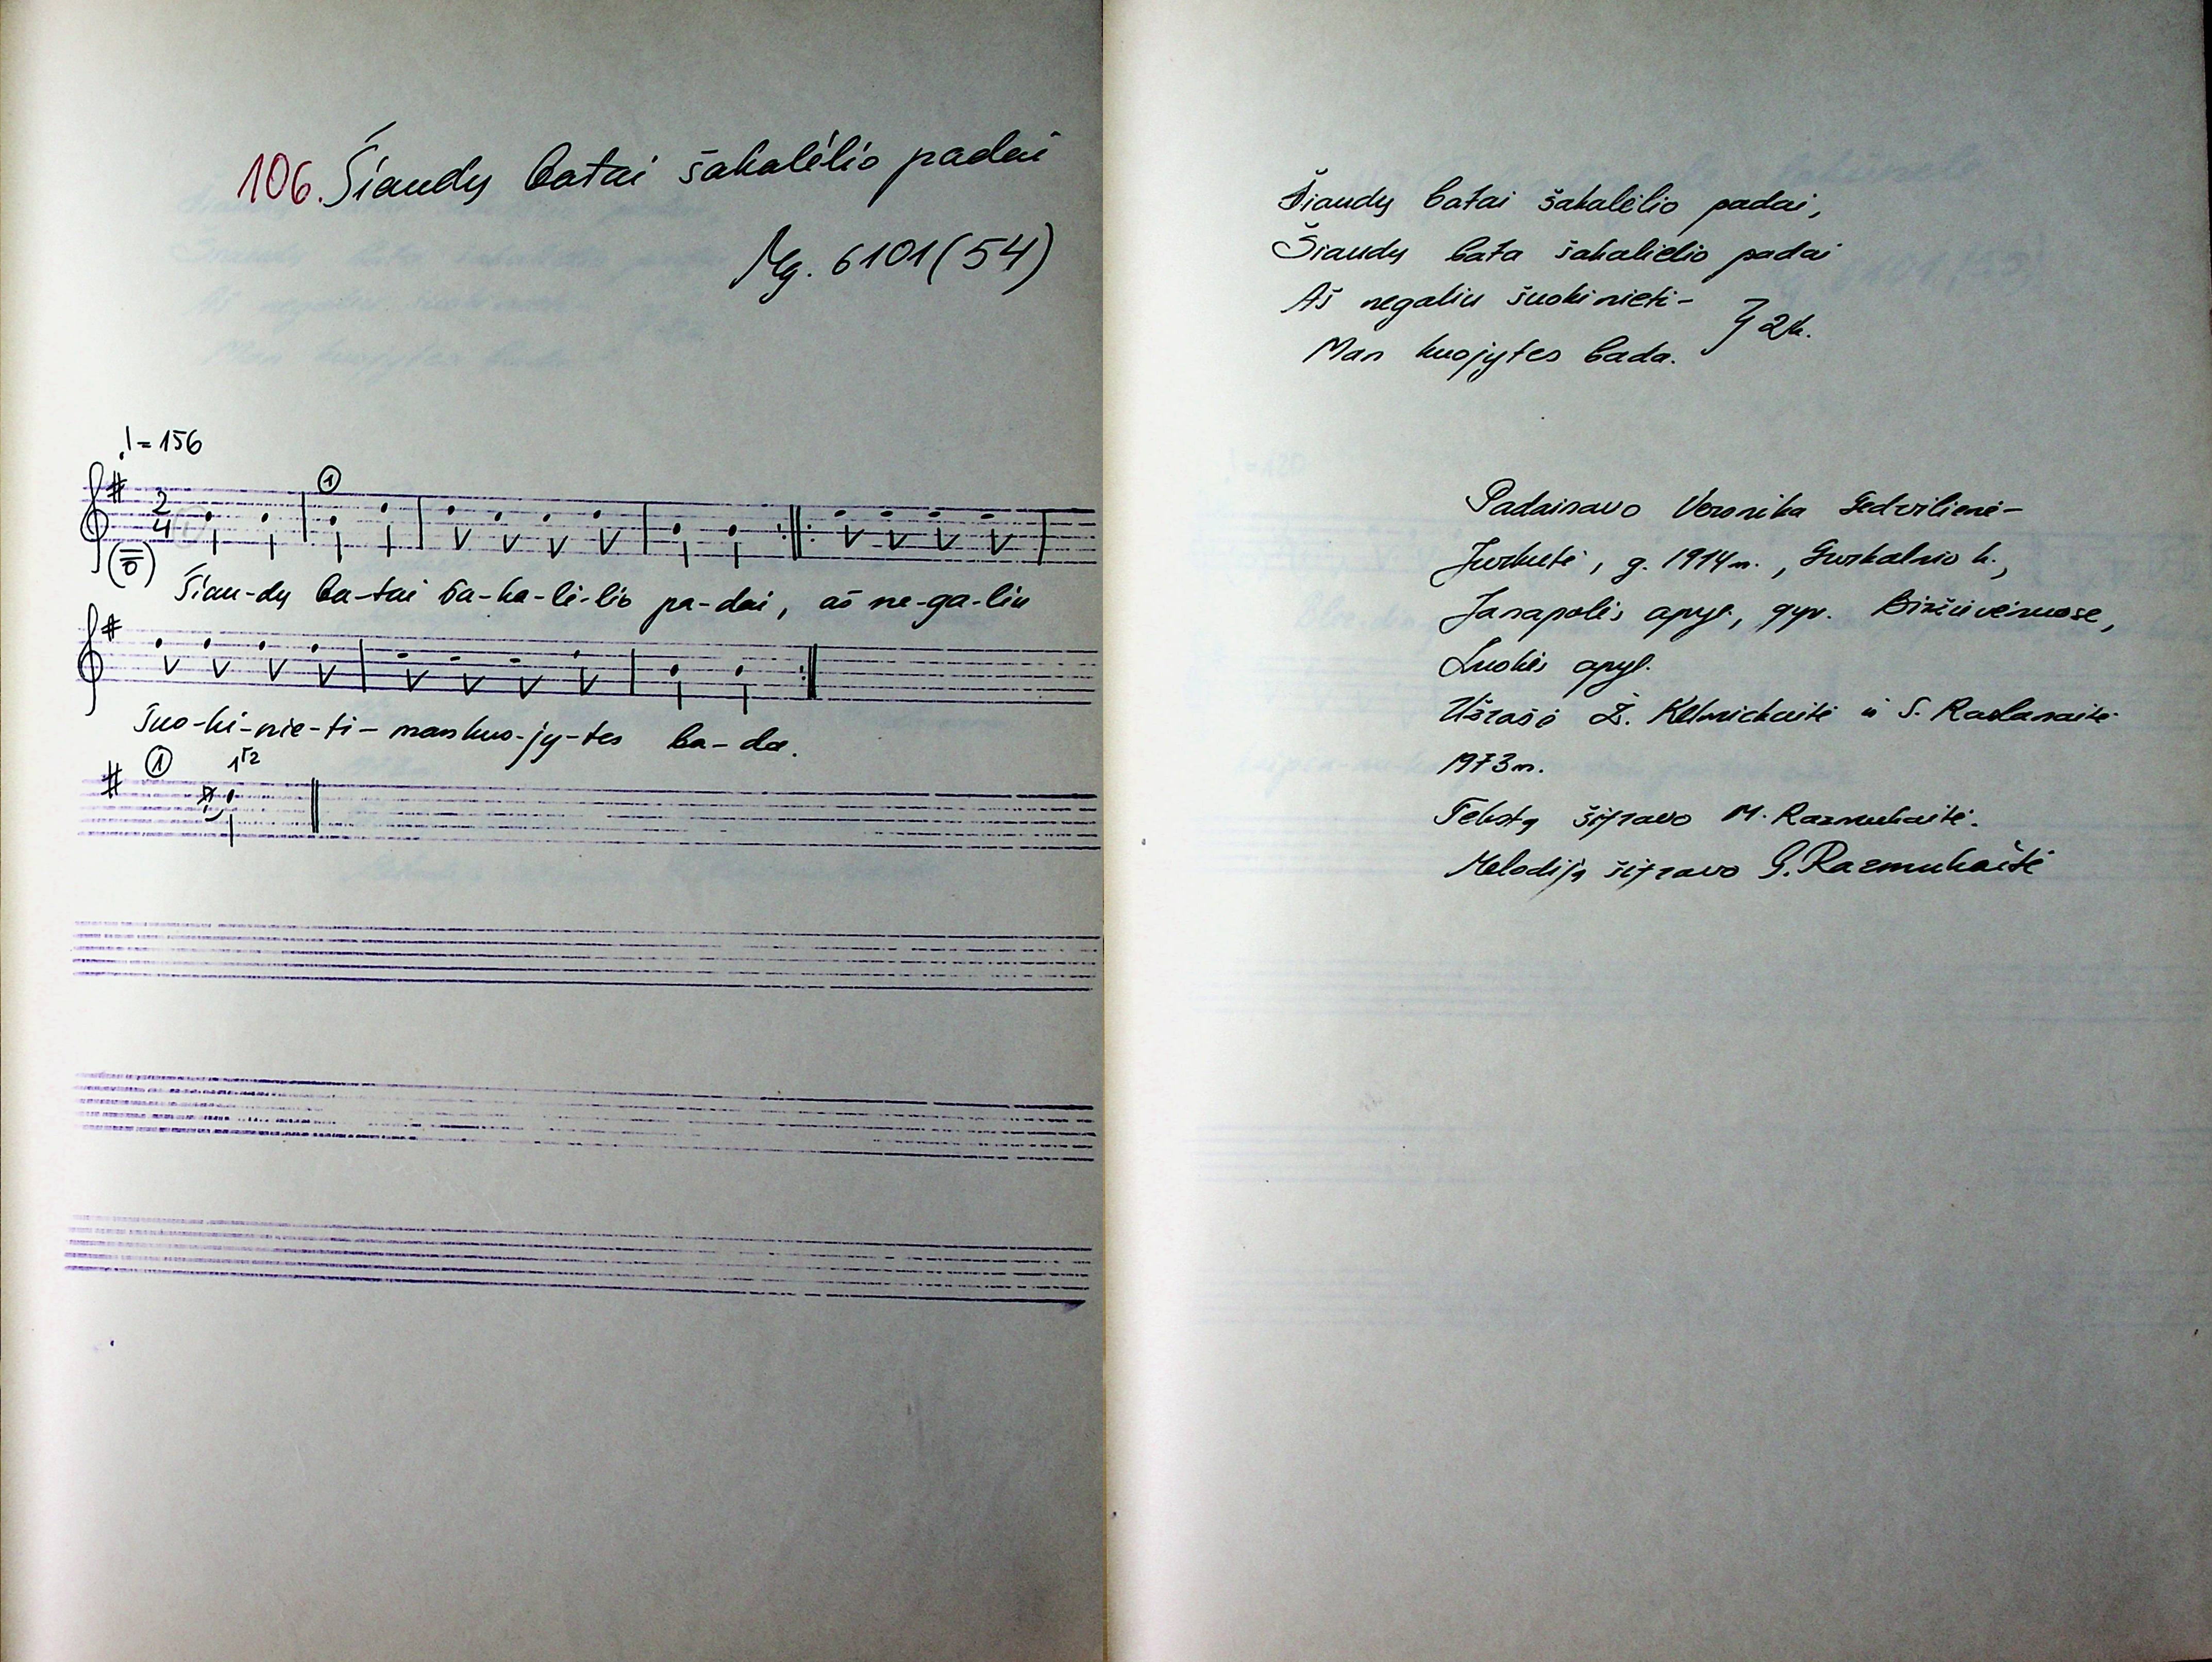 106. Šiaudų batai šakalėlio padai
Mg. 6101(54)
♩=156
①
2
4
Šiau-dų ba-tai ša-ka-lė-lio pa-dai, aš ne-ga-liu
šuo-ki-nie-ti- man kuo-jy-tes ba-da.
①
Šiaudų batai šakalėlio padai,
Šiaudų bata šakalielio padai
Aš negaliu šuokinieti-
Man kuojytes bada. } 2k.
Padainavo Veronika Gedvilienė-
Jurkutė, g. 1914 m., k.,
Janapolės apyl., gyv. Biržuvėnuose,
Luokės apyl.
Užrašė Ž. Kelmickaitė ir S.
1973 m.
Tekstą šifravo M. Razmukaitė.
Melodiją šifravo G. Razmukaitė